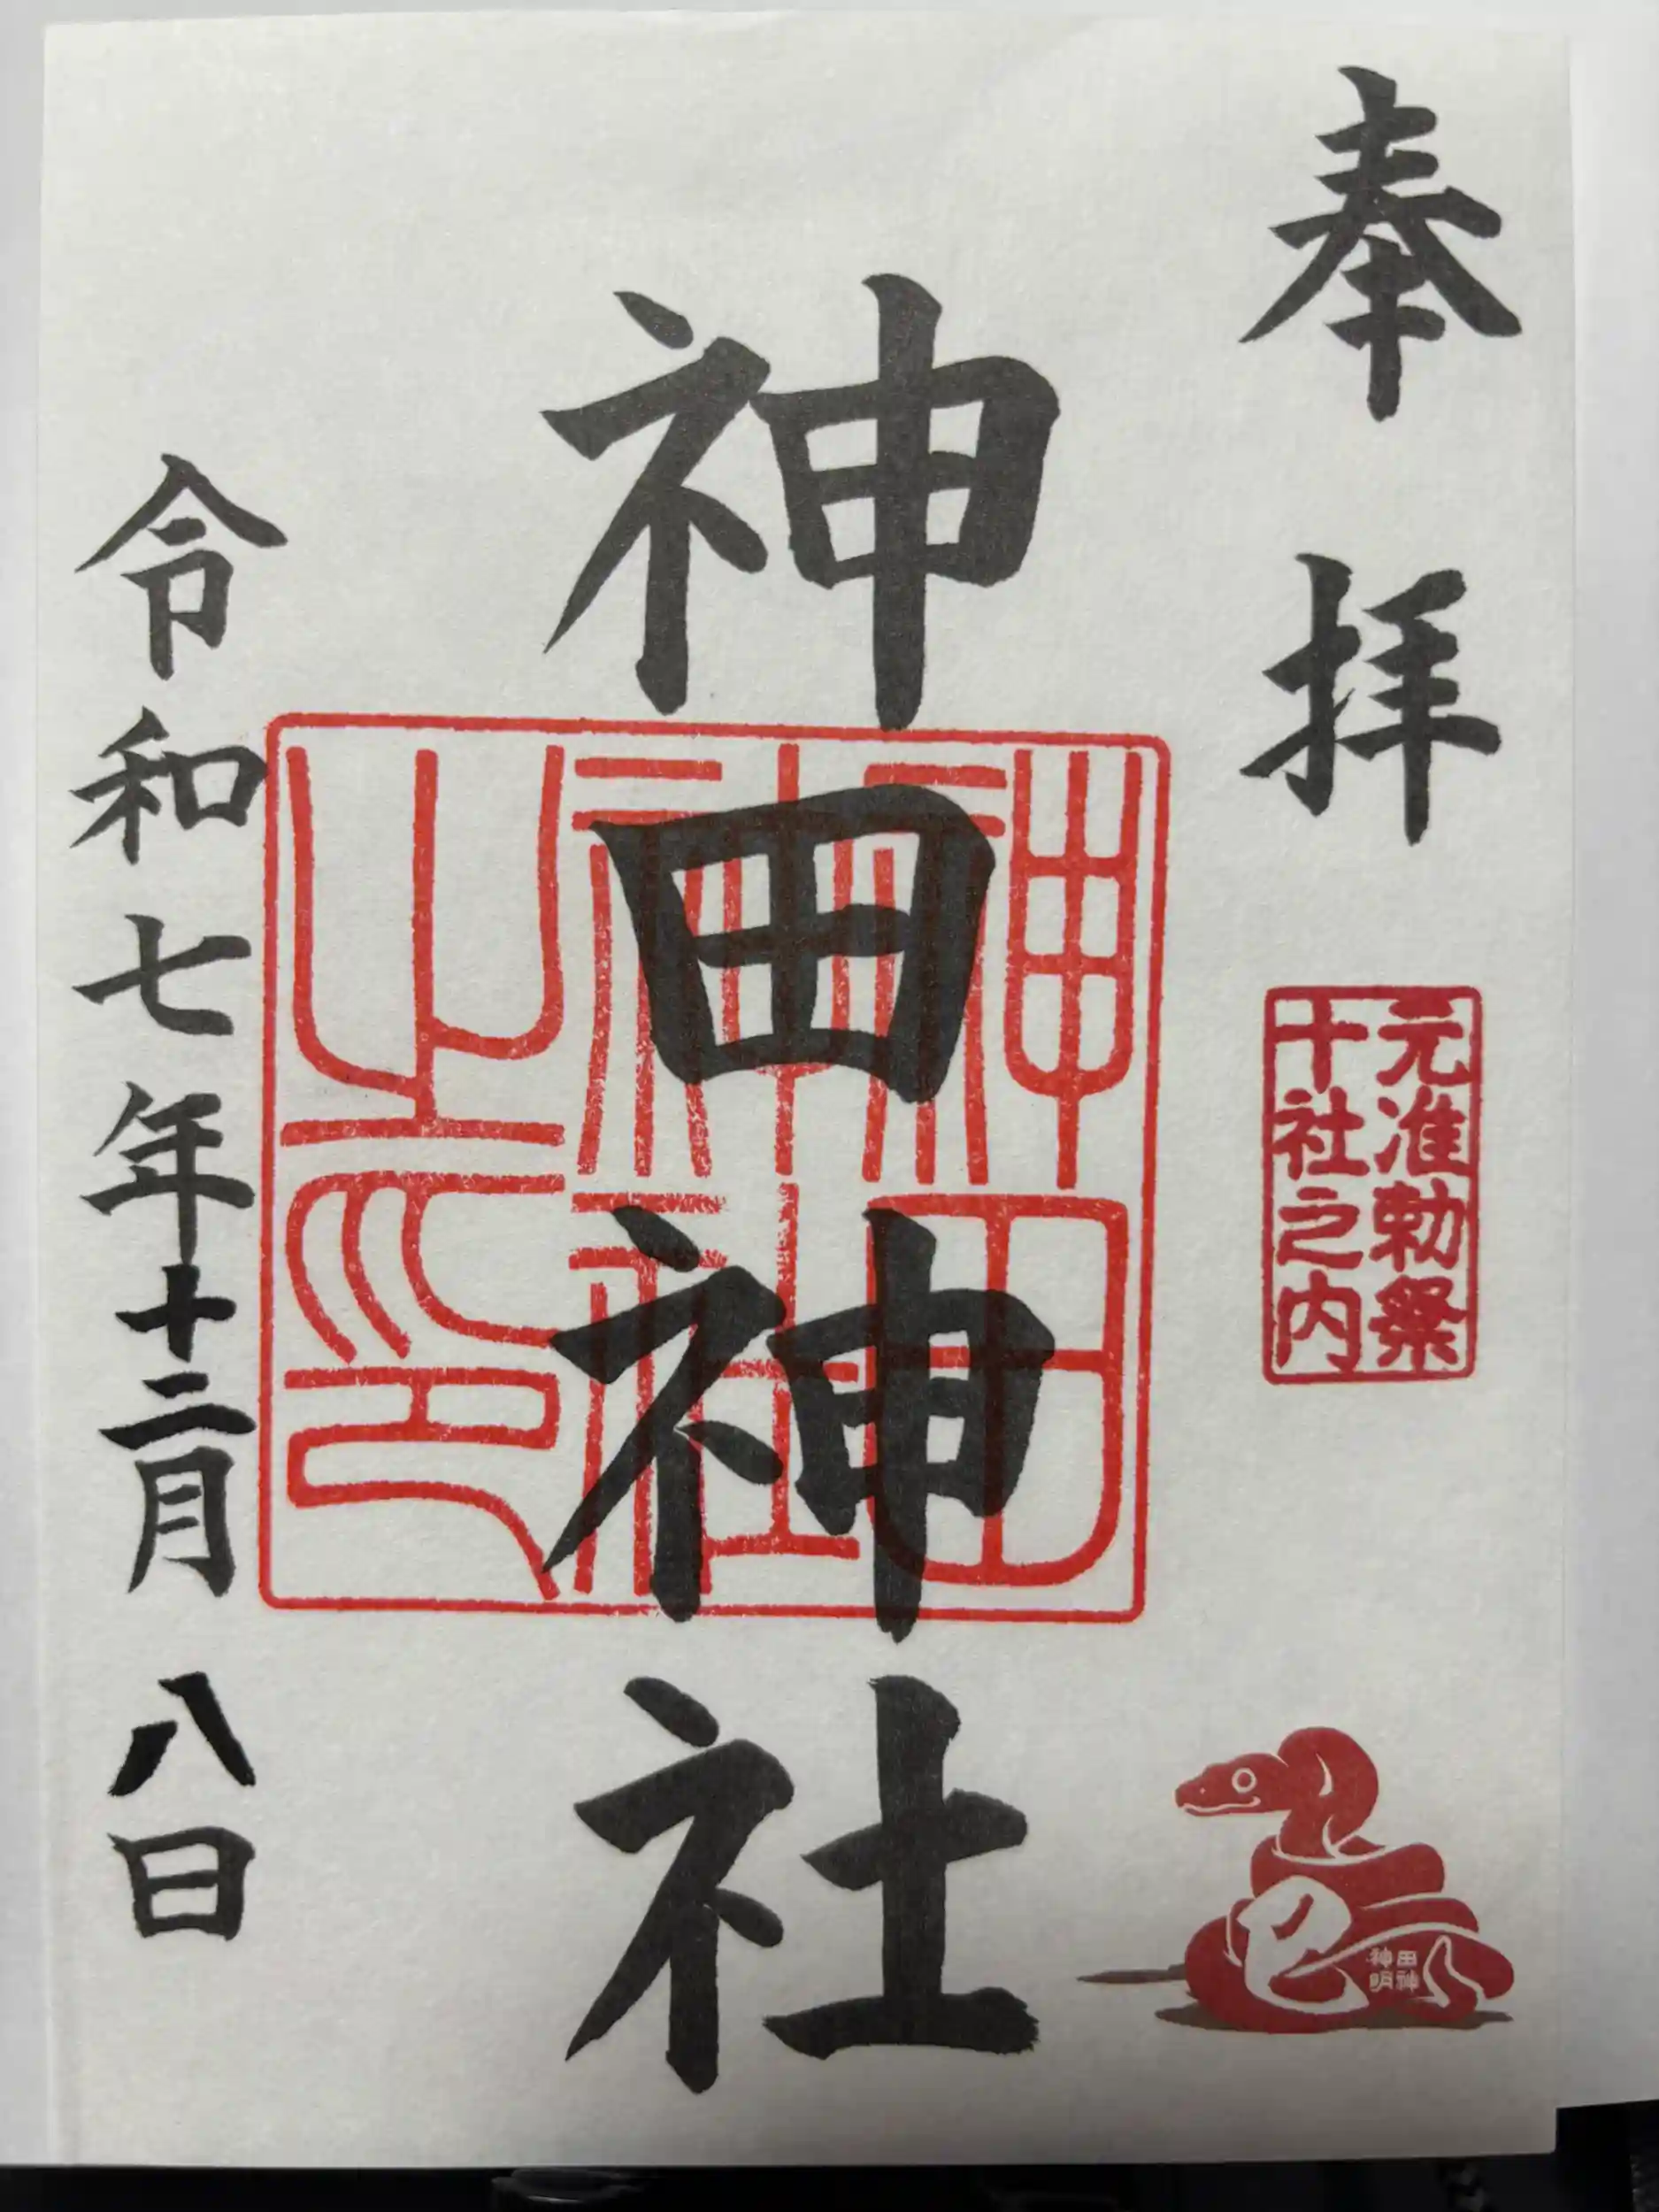 奉拝
元准勅祭
十社之内
巳
神田
神明
神田神社
神田
神社
之印
令和七年十二月八日